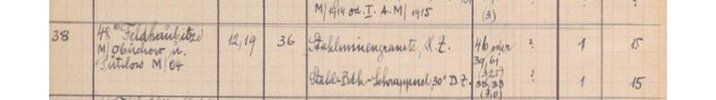 M/1914 od. I. A. M/1915
(3)
38
48''' Feldhaubitze
M/Obuchow u.
Putilow M/04
12,19
36
Stahlminengranate, A.Z.
46 oder
39,61
(325)
?
1
15
Stahl-Bdk.-Schrappnel, 30" D.Z.
38,33
(3,0)
?
1
15